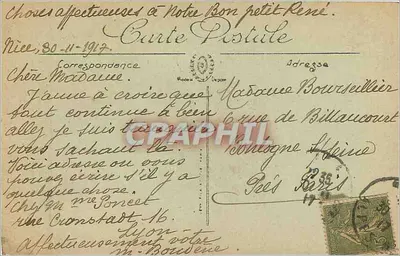 Choses affectueuses à Notre Bon petit René.
Nice, 30-11-1917.
Carte Postale
Correspondance
Adresse
Chère Madame.
J'aime à croire que
tout continue à bien
aller, je suis tranquille
vous sachant là.
Voici adresse ou vous
pouvez écrire s'il y a
quelque chose.
Chez Mme Poncet
rue Cronstadt-16.
Lyon-
Affectueusement votre
M. Boudène
Madame Bourseillier
6 rue de Billancourt
Boulogne s/Seine
Près Paris
CPAPHIL